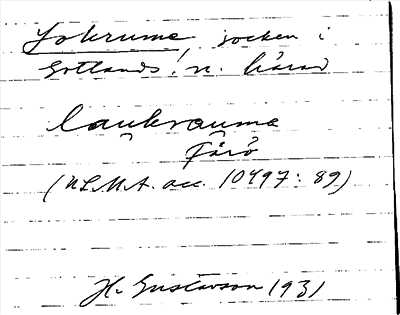 Lokrume, socken i
Gotlands n. härad
laukrauma
Fårö
(ULMA. acc. 10497: 89)
H. Gustavson 1931